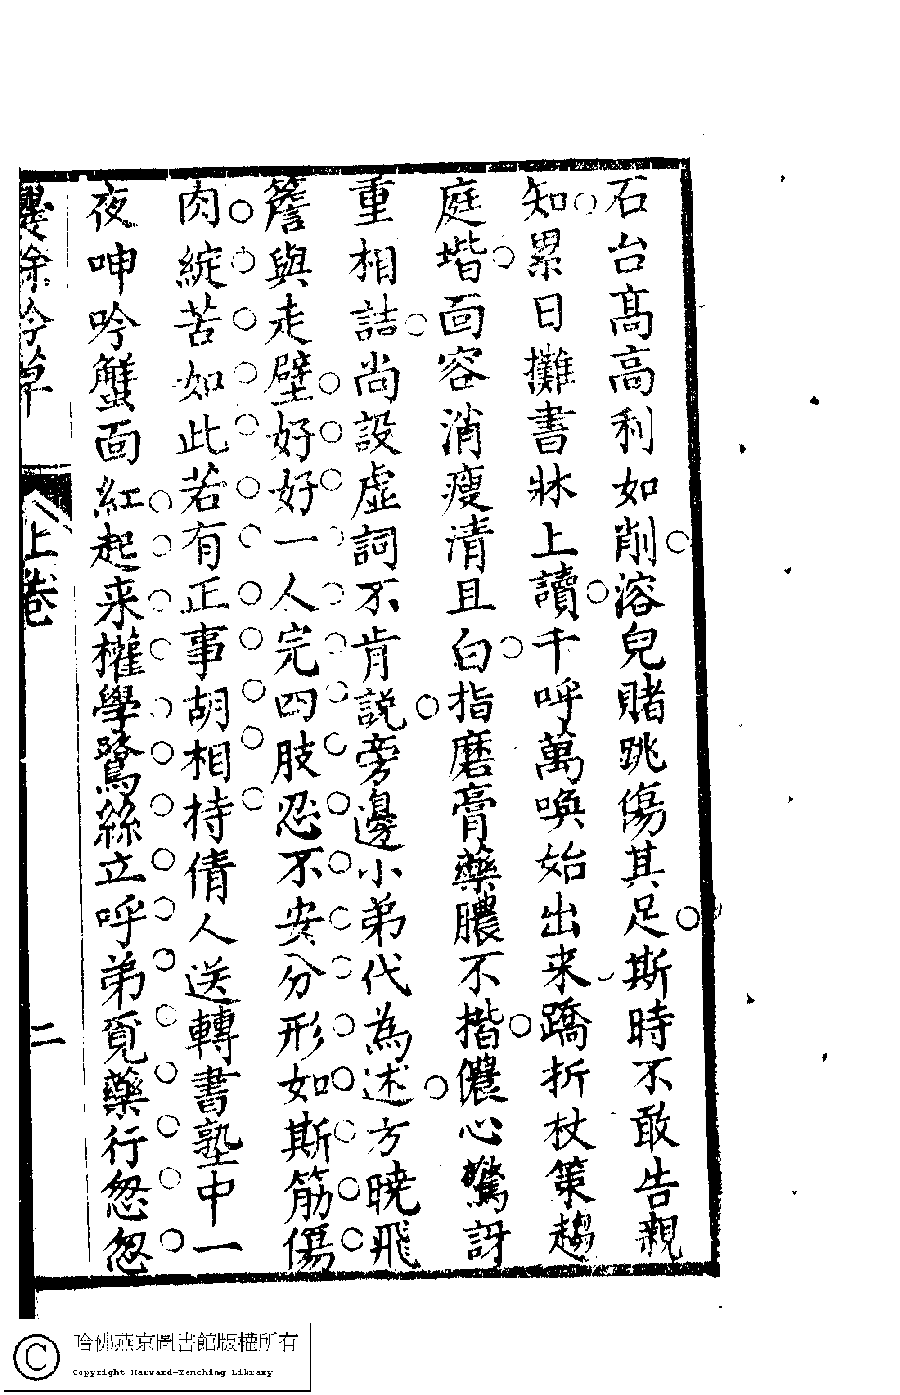 石台高高利如削溶兒賭跳傷其足斯時不敢告親
知累日攤書牀上讀千呼萬喚始出来蹻折杖策趨
庭堦面容消瘦清且白指磨膏藥膿不揩儂心驚訝
重相詰尚設虛詞不肯説旁邊小弟代為述方曉飛
簷與走壁好好一人完四肢忍不安分形如斯筋傷
肉綻苦如此若有正事胡相持倩人送轉書塾中一
夜呻吟蟹面紅起来權學鷺絲立呼弟覓藥行怱怱
餘吟草
上卷
二
哈佛燕京圖書館版權所有
Copyright Harvard-Yenching Library